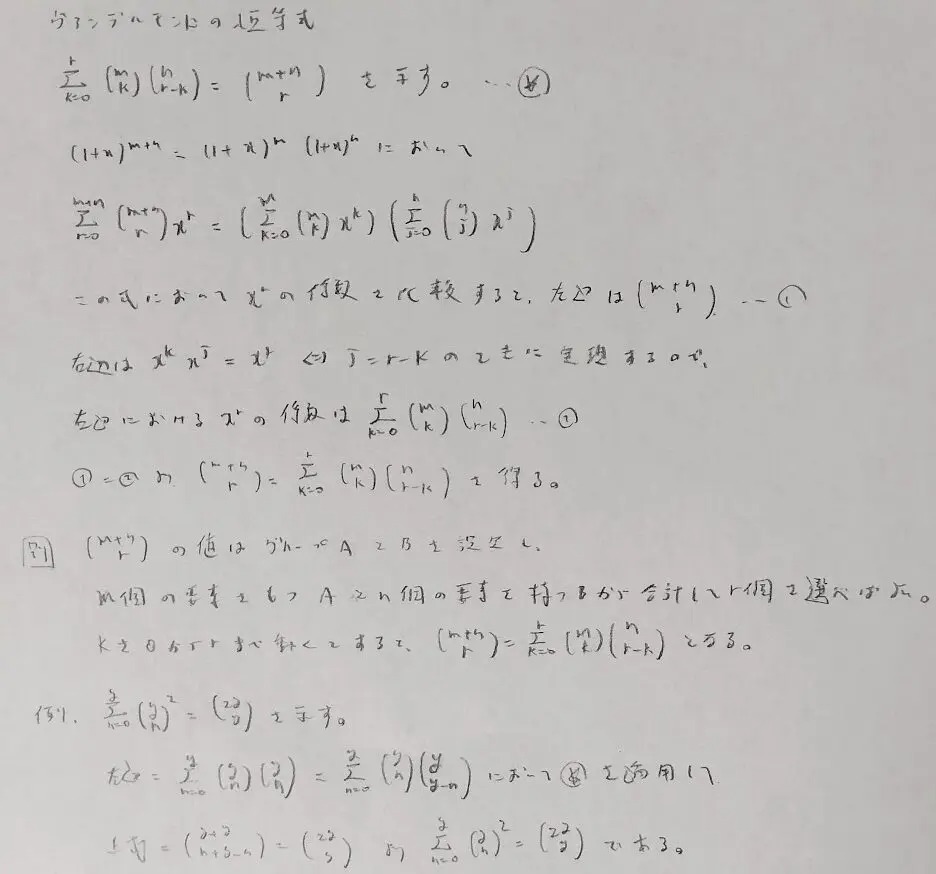 ヴァンデルモンドの恒等式
\sum_{k=0}^{r} \binom{m}{k} \binom{n}{r-k} = \binom{m+n}{r} を示す。 … ※
(1+x)^{m+n} = (1+x)^m (1+x)^n において
\sum_{r=0}^{m+n} \binom{m+n}{r} x^r = ( \sum_{k=0}^{m} \binom{m}{k} x^k ) ( \sum_{j=0}^{n} \binom{n}{j} x^j )
この式において x^r の係数を比較すると、左辺は \binom{m+n}{r} … ①
右辺は x^k x^j = x^r ⇔ j = r-k のときに実現するので、
右辺における x^r の係数は \sum_{k=0}^{r} \binom{m}{k} \binom{n}{r-k} … ②
① = ② より \binom{m+n}{r} = \sum_{k=0}^{r} \binom{m}{k} \binom{n}{r-k} を得る。
別 \binom{m+n}{r} の値はグループ A と B を設定し、
m個の要素をもつ A と n個の要素を持つ B から合計して r個を選べばよい。
k を 0 から r まで動くとすると、 \binom{m+n}{r} = \sum_{k=0}^{r} \binom{m}{k} \binom{n}{r-k} となる。
例1. \sum_{n=0}^{y} \binom{y}{n}^2 = \binom{2y}{y} を示す。
左辺 = \sum_{n=0}^{y} \binom{y}{n} \binom{y}{n} = \sum_{n=0}^{y} \binom{y}{n} \binom{y}{y-n} において ※ を適用して
上式 = \binom{y+y}{n+y-n} = \binom{2y}{y} より \sum_{n=0}^{y} \binom{y}{n}^2 = \binom{2y}{y} である。